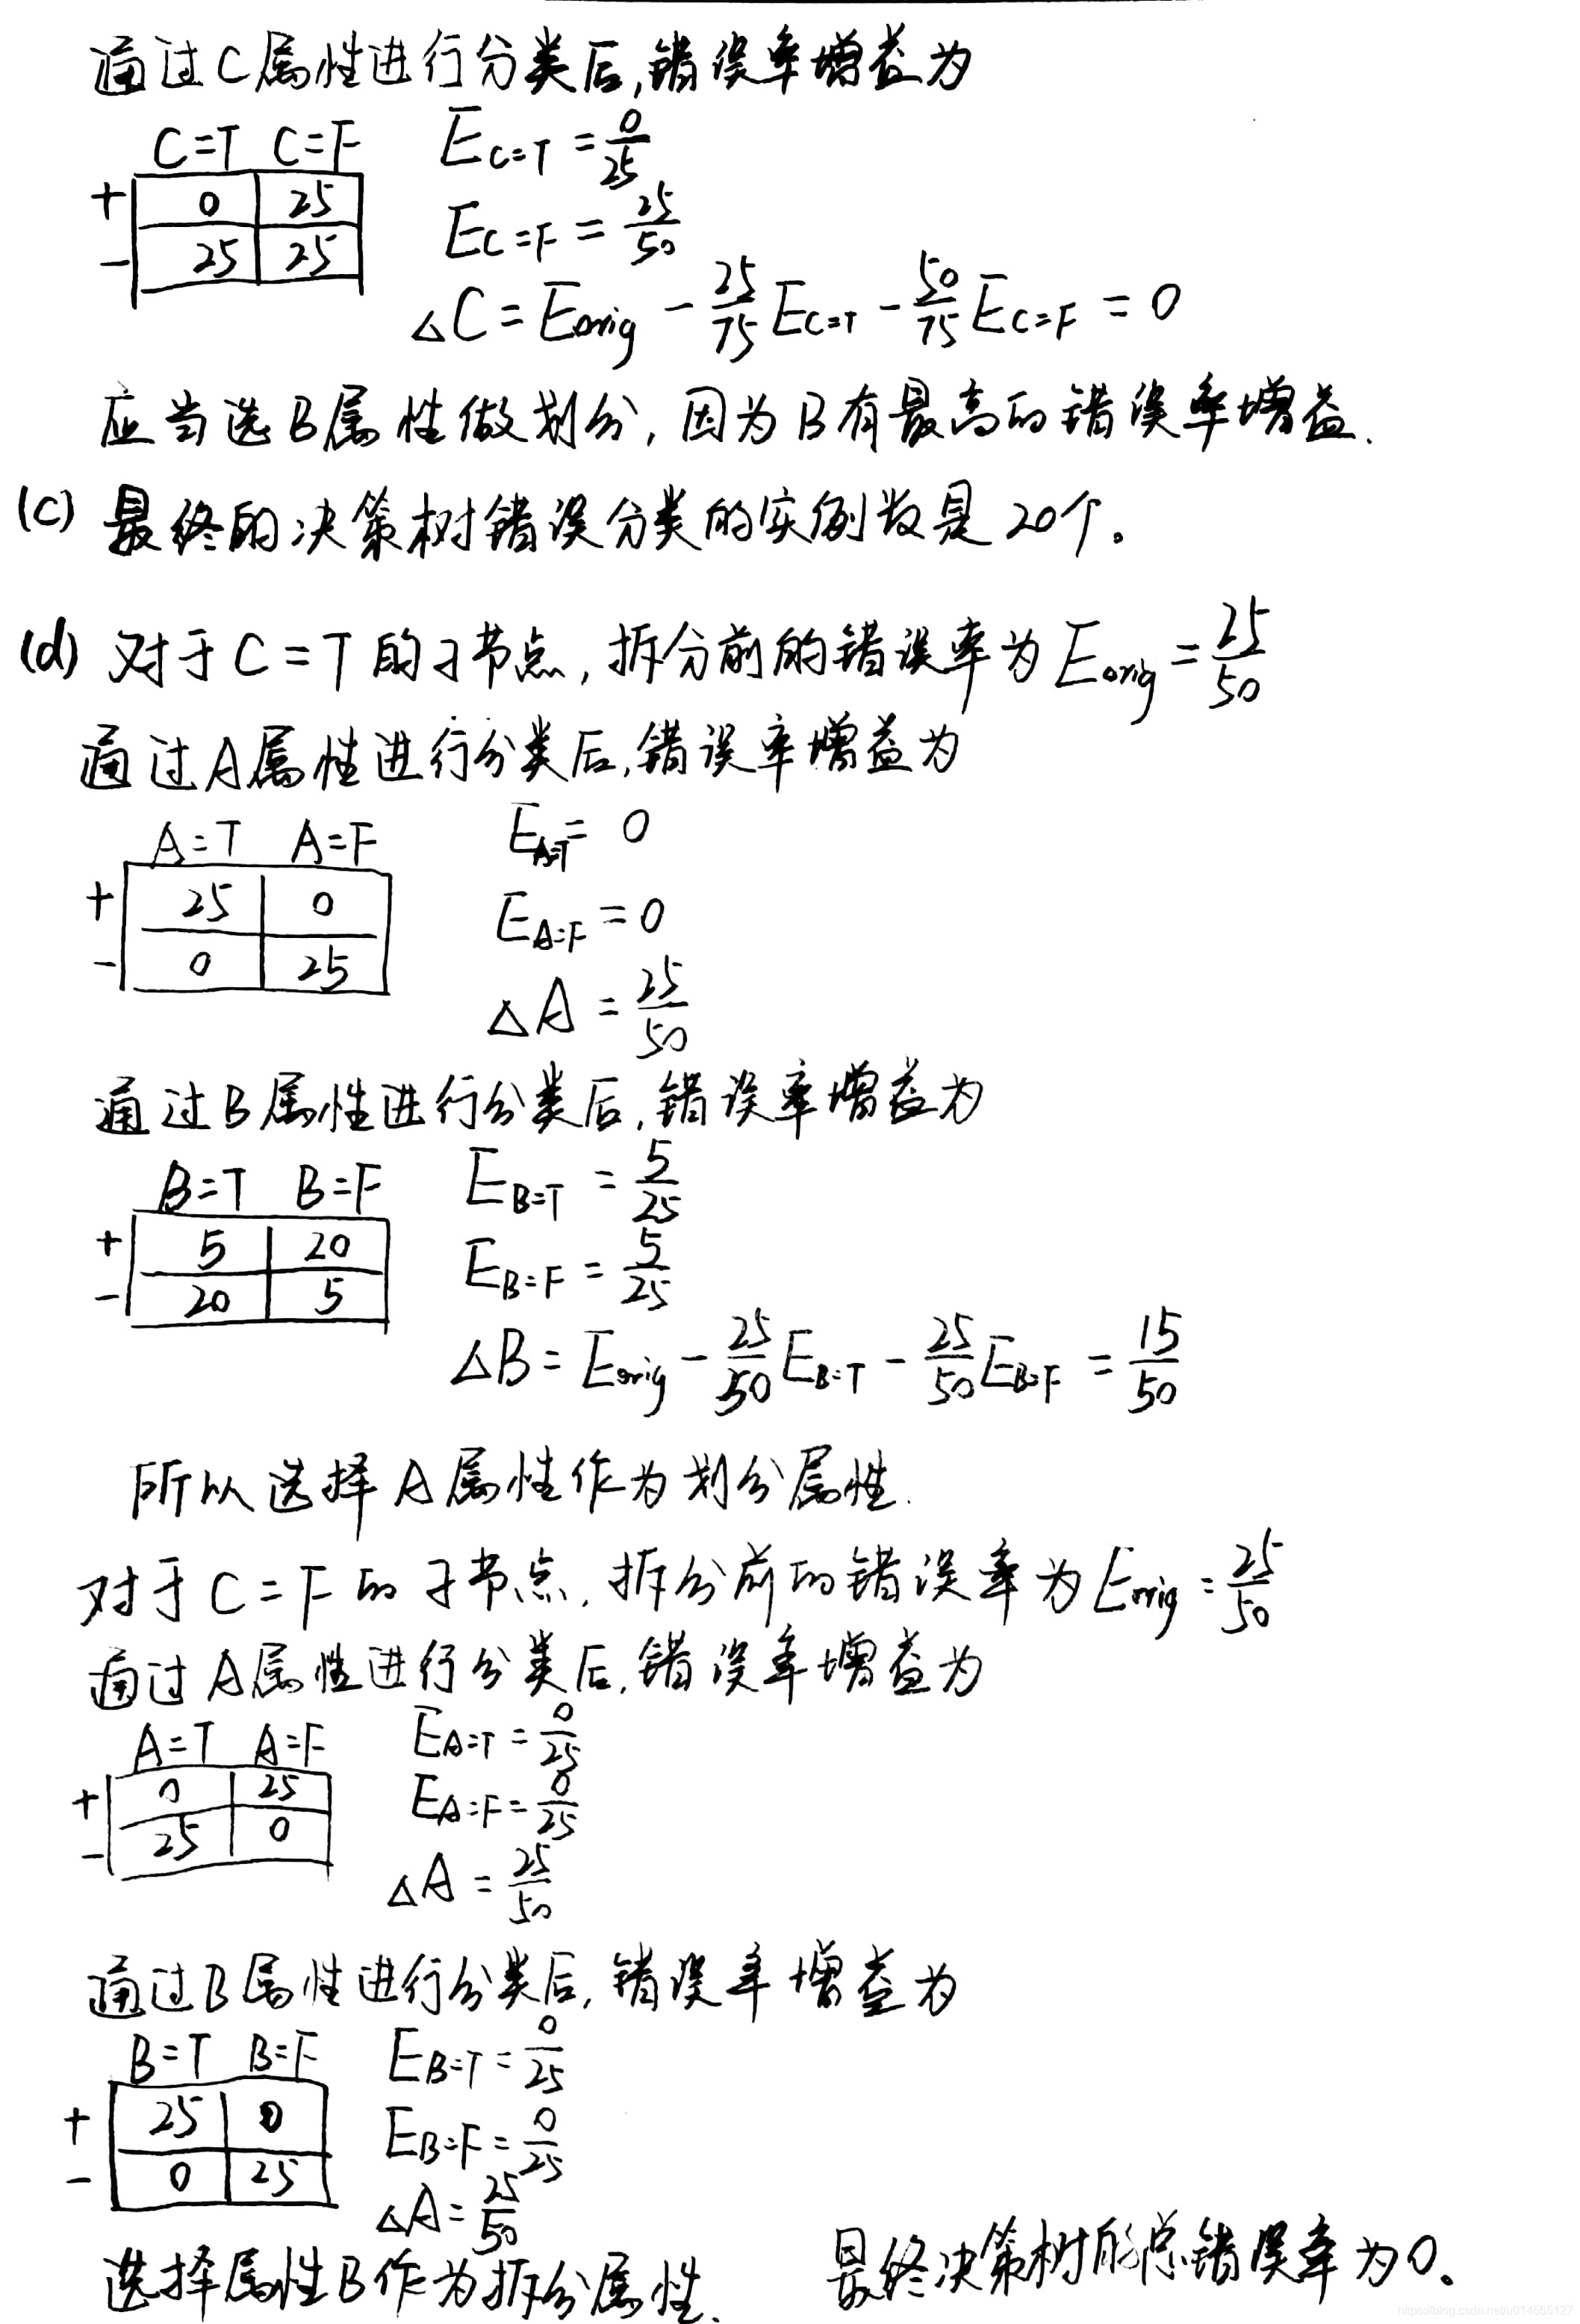 通过C属性进行分类后,错误率增益为
C=T C=F
+ 0 25
- 25 25
E_{C=T} = 0/25
E_{C=F} = 25/50
△C = E_{orig} - 25/75 E_{C=T} - 50/75 E_{C=F} = 0
应当选B属性做划分,因为B有最高的错误率增益.
(c) 最终的决策树错误分类的实例数是20个。
(d) 对于C=T的子节点,拆分前的错误率为E_{orig} = 25/50
通过A属性进行分类后,错误率增益为
A=T A=F
+ 25 0
- 0 25
E_{A=T} = 0
E_{A=F} = 0
△A = 25/50
通过B属性进行分类后,错误率增益为
B=T B=F
+ 5 20
- 20 5
E_{B=T} = 5/25
E_{B=F} = 5/25
△B = E_{orig} - 25/50 E_{B=T} - 25/50 E_{B=F} = 15/50
所以选择A属性作为划分属性.
对于C=F的子节点,拆分前的错误率为E_{orig} = 25/50
通过A属性进行分类后,错误率增益为
A=T A=F
+ 0 25
- 25 0
E_{A=T} = 0/25
E_{A=F} = 0/25
△A = 25/50
通过B属性进行分类后,错误率增益为
B=T B=F
+ 25 0
- 0 25
E_{B=T} = 0/25
E_{B=F} = 0/25
△A = 25/50
选择属性B作为拆分属性.
最终决策树的总错误率为0。
https://blog.csdn.net/u014565127